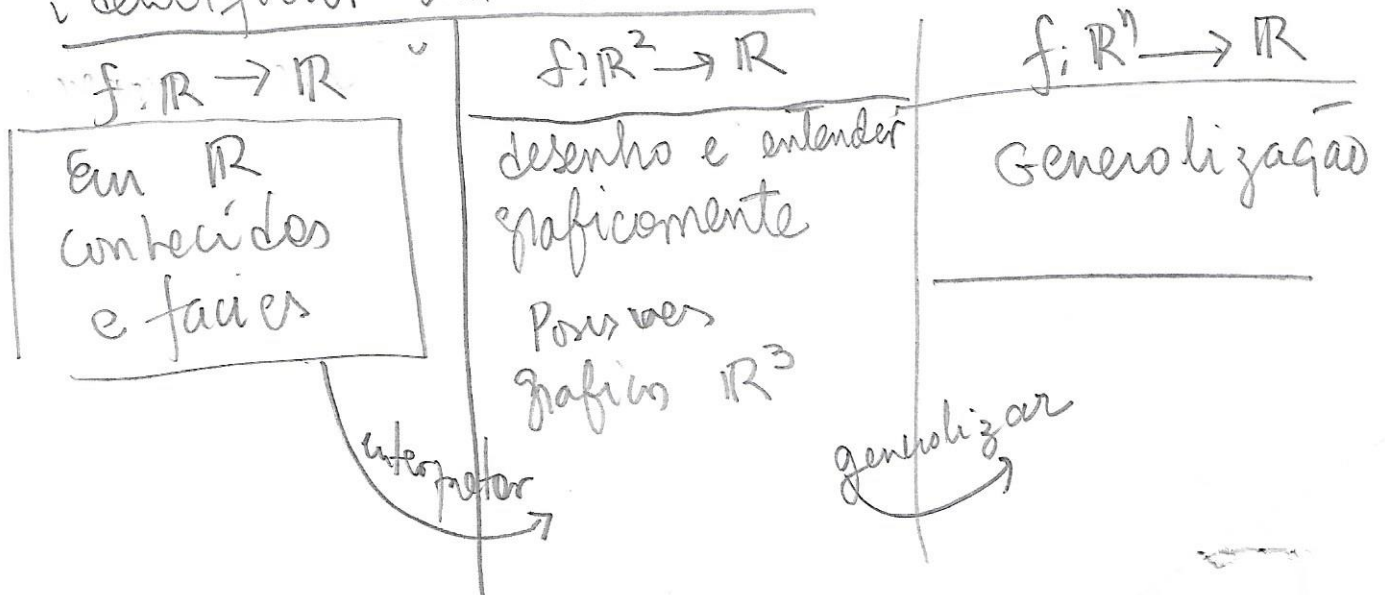 identificar
f: ℝ → ℝ
Em ℝ
conhecidos
e faceis
interpretar
f: ℝ² → ℝ
desenho e entender
graficamente
Possiveis
graficos ℝ³
generalizar
f: ℝⁿ → ℝ
Generalização